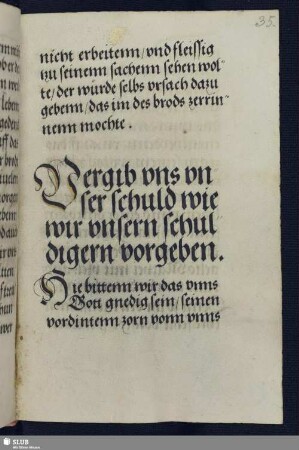 35.
nicht erbeitenn/ vnd fleissig
tzu seinenn sachenn sehen wol-
te/ der wurde selbs vrsach dazu
gebenn/ das im des brods zerrin-
nenn mochte.
Vergib vns vn
ser schuld wie
wir vnsern schul
digern vorgeben.
Hie bittenn wir das vnns
Gott gnedig sein/ seinen
vordintenn zorn vonn vnns
SLUB
Wir führen Wissen.